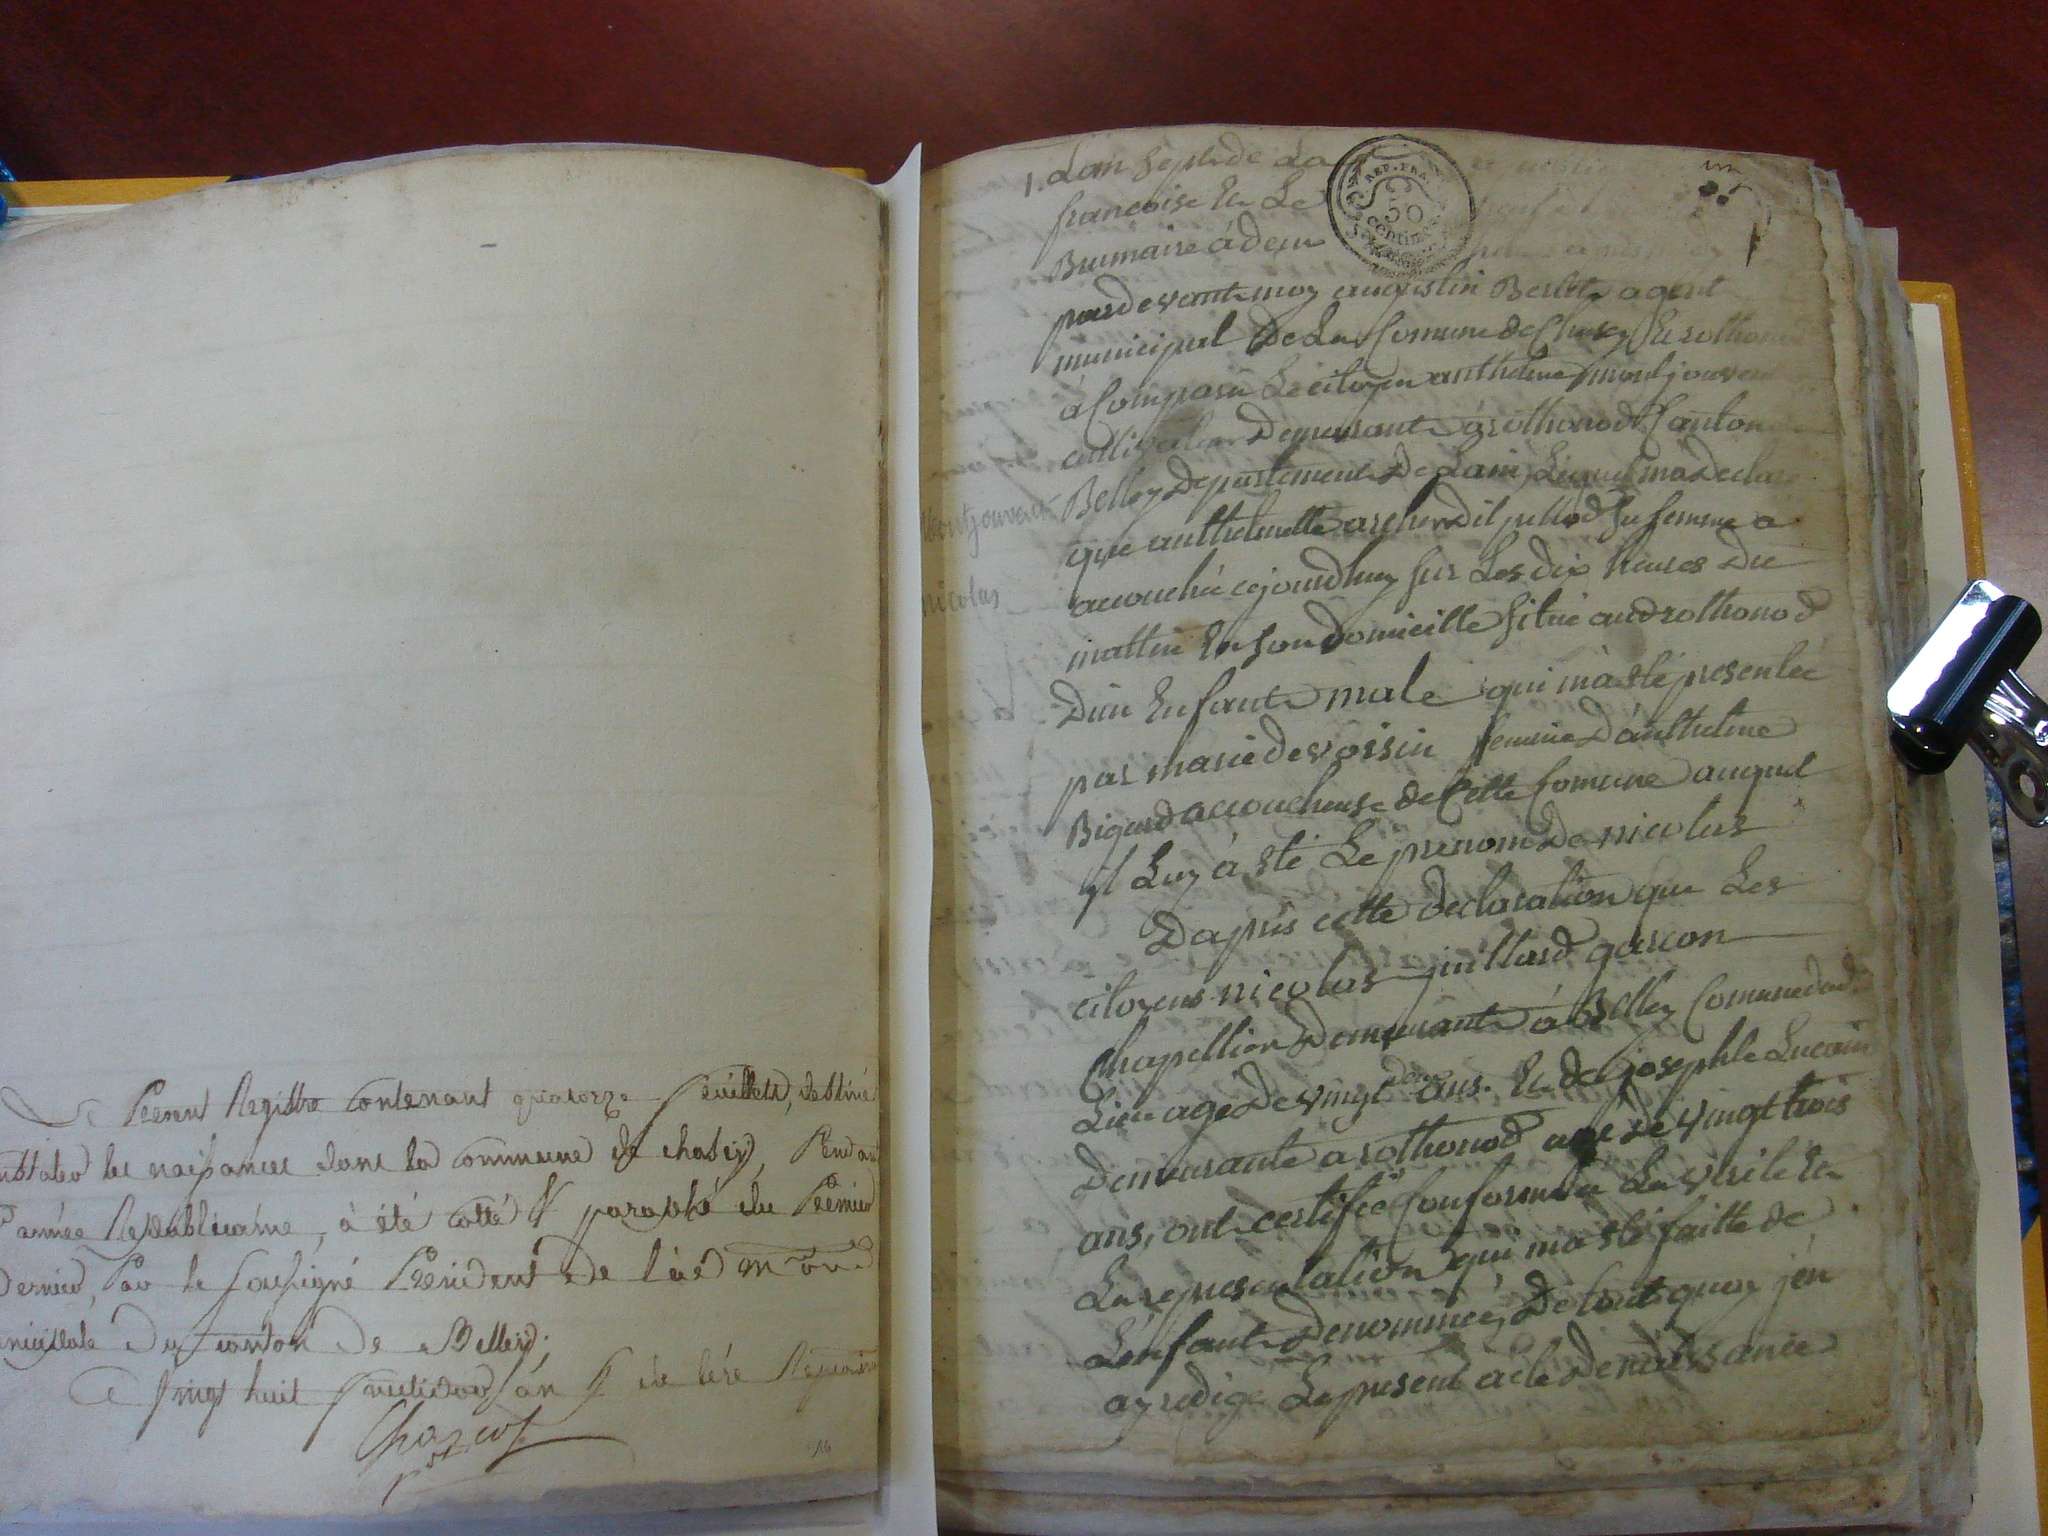 Le Présent Registre contenant quatorze feuillets, destiné
les naissances dans la commune de chasey, Pendant
année Republicaine, à été cotté & paraphé du Premier
dernier, Par le soussigné Président de l'ad m on
du canton de Belley;
Ce vingt huit fructidor an 6 de l'ére Republicaine
Charcot
16
REP. FRA.
50
centimes
1. Lan Sept de La
francoise Et Le
Brumaire á deux
pardevant moy augustin Berlet agent
municipal De La Comune de Chasey Et rothonod
á Comparu Le citoyen anthelme montjouvent
cultivateur Demeurant á rothonod Canton
Belley Departement De Lain, Lequel ma Declaré
que anthelmette archer dit pettod sa femme a
accouchée cejourdhuy sur Les dix heures Du
mattin En son Domicille situé audrothonod
Dun Enfant male qui má eté presenteé
par marie devoissin femme D'anthelme
Bigard accoucheuse de Cette Comune auquel
yl Luy á eté Le prenom De nicolas
Dapres cette declaration que Les
citoyens nicolas juillard garcon
Chapellier Demeurant á Belley Comune dud.
Lieu agé De vingt deux ans. Et de joseph Le Lucain
Demeurant a rothonod agé De vingt trois
ans, ont certifié Conforme á La vérité Et
La representation qui ma eté faitte de
L'enfant Denommeé, De tout quoy j'en
ay redigé Le present acte De naissance
montjouvent
nicolas